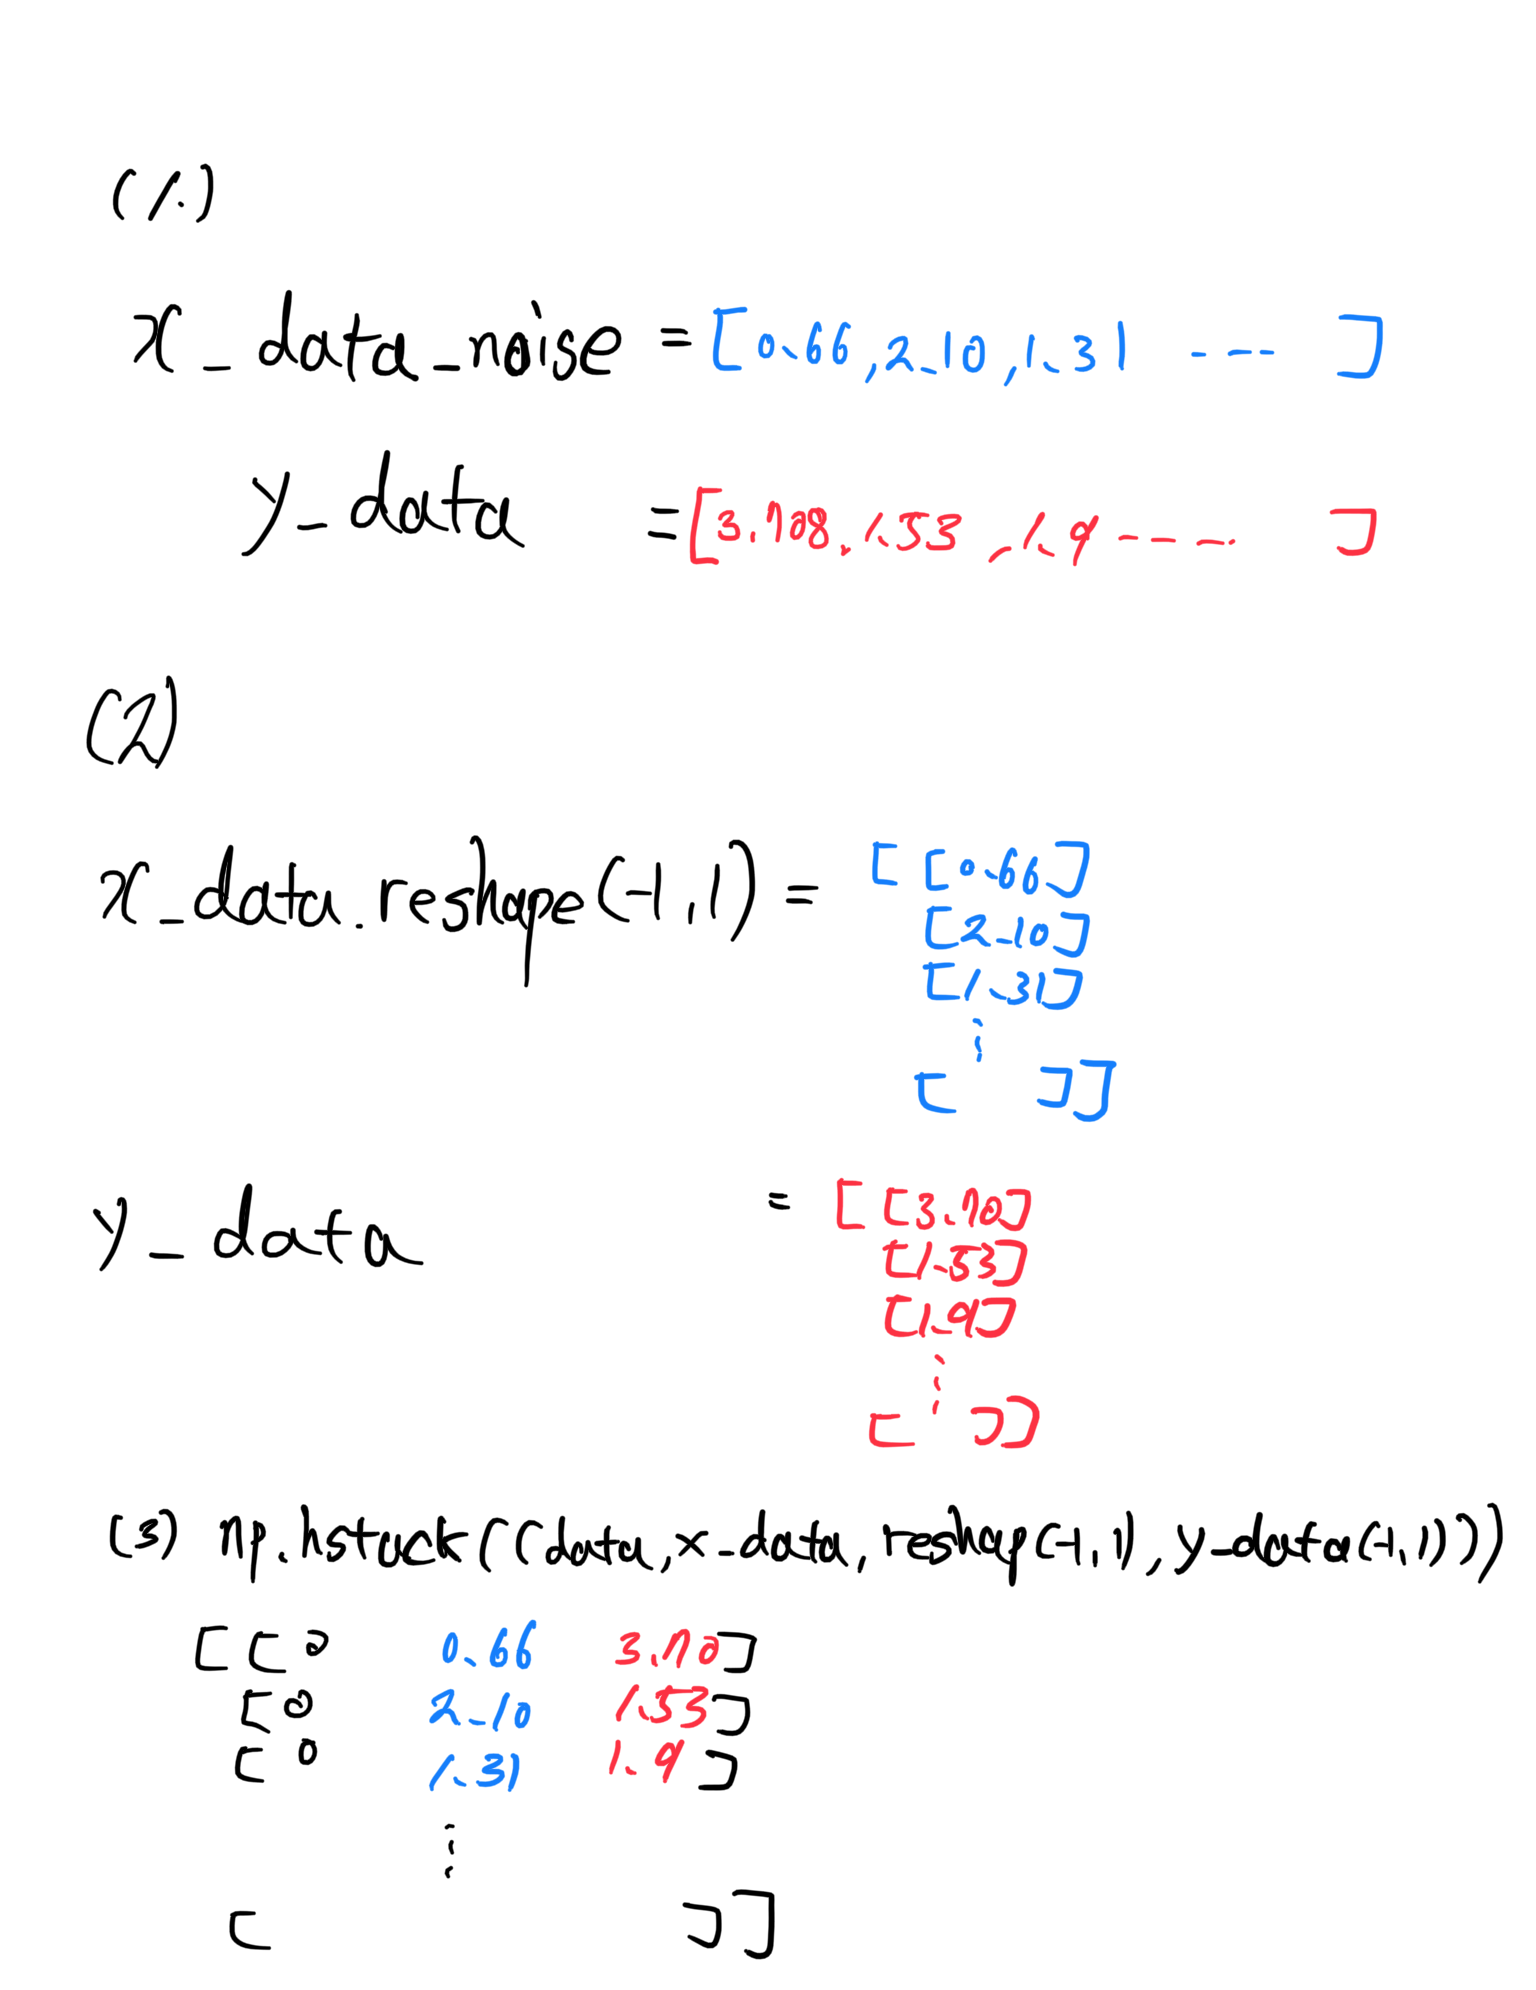 (1.)
x_data_noise = [0.66, 2.10, 1.31 --- ]
y_data = [3.708, 1.53, 1.9 ---- ]
(2)
x_data.reshape(-1,1) = [[0.66]
[2.10]
[1.31]
⋮
[ ]]
y_data = [[3.70]
[1.53]
[1.9]
⋮
[ ]]
(3) np.hstack((data,x-data,reshap(-1,1),y-data(-1,1)))
[[0 0.66 3.70]
[0 2.10 1.53]
[0 1.31 1.9]
⋮
[ ]]